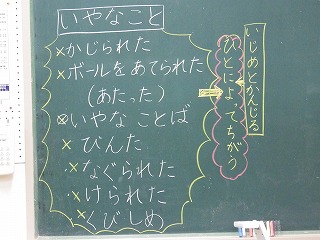 いやなこと
×かじられた
×ボールをあてられた
(あたった)
×いやな ことば
×びんた
×なぐられた
×けられた
×くびしめ
いじめとかんじる
ひとによってちがう